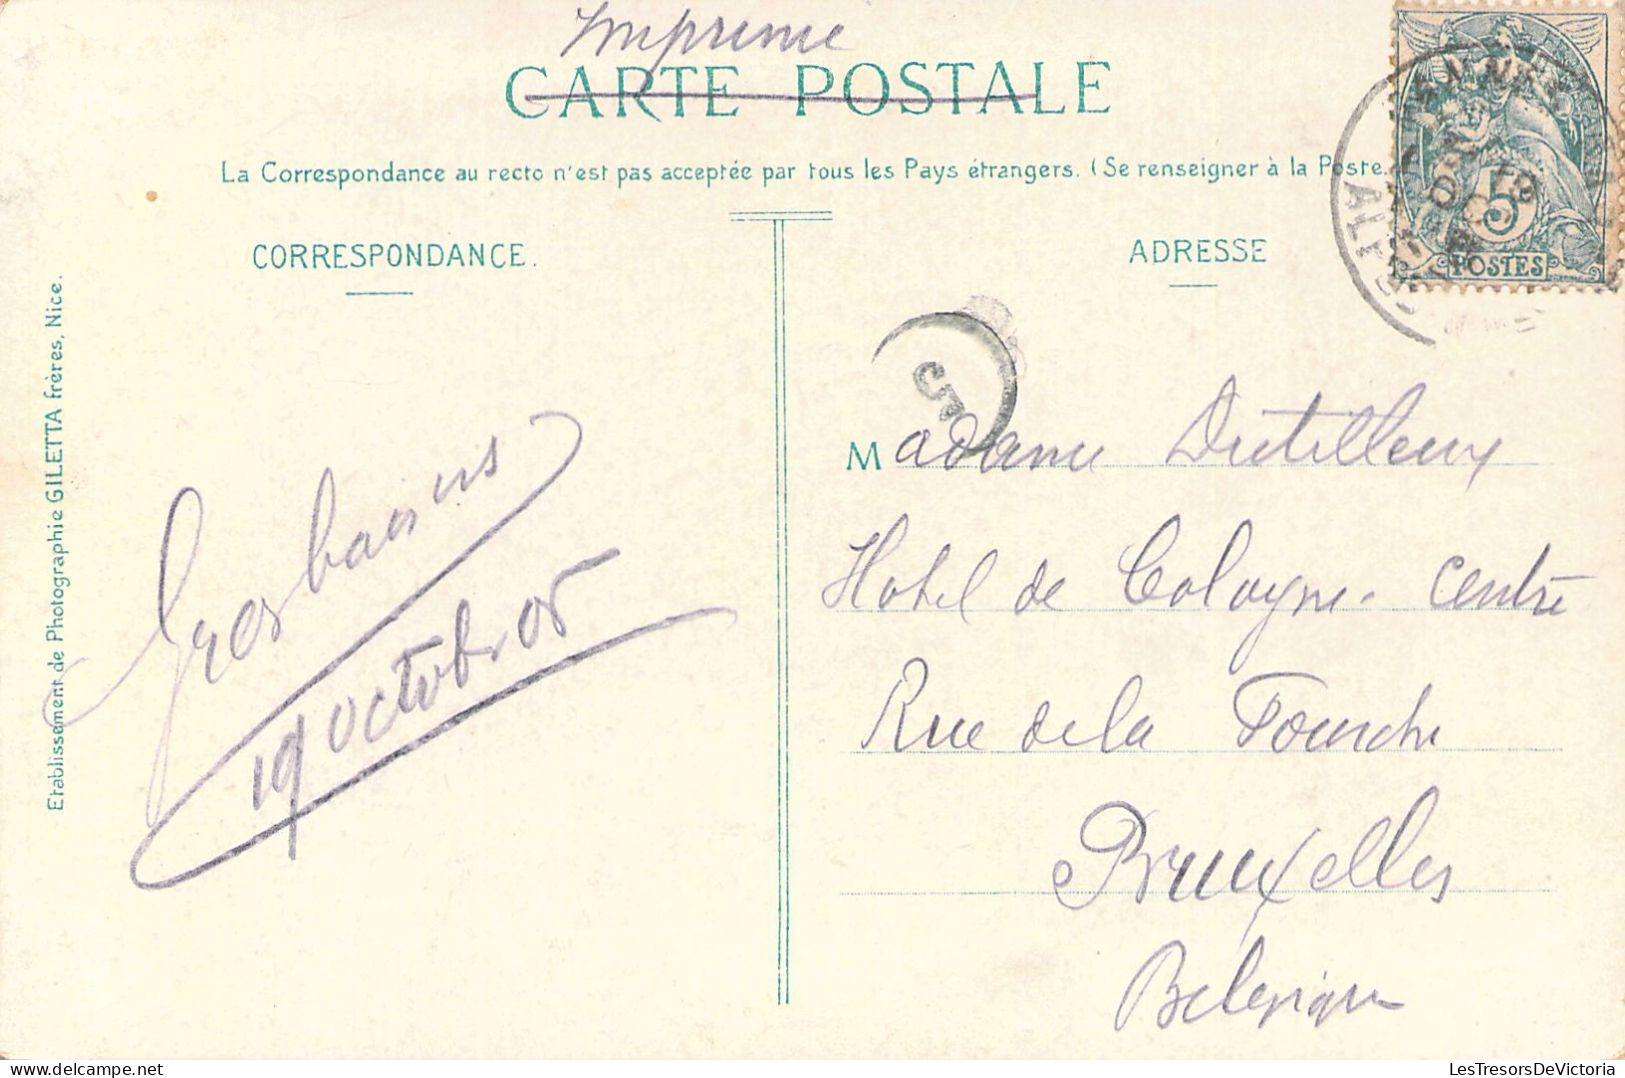 Imprimé
CARTE POSTALE
La Correspondance au recto n'est pas acceptée par tous les Pays étrangers. (Se renseigner à la Poste.
CORRESPONDANCE.
ADRESSE
5
POSTES
5
Gros baisers
19 octobre 05
Madame Dutilleux
Hotel de Cologne. Centre
Rue de la Fourche
Bruxelles
Belgique
Etablissement de Photographie GILETTA frères, Nice.
LesTresorsDeVictoria